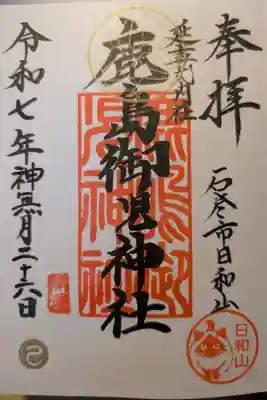 奉拝
石巻市日和山
延喜式内社
鹿島御児神社
令和七年神無月二十六日
日和山